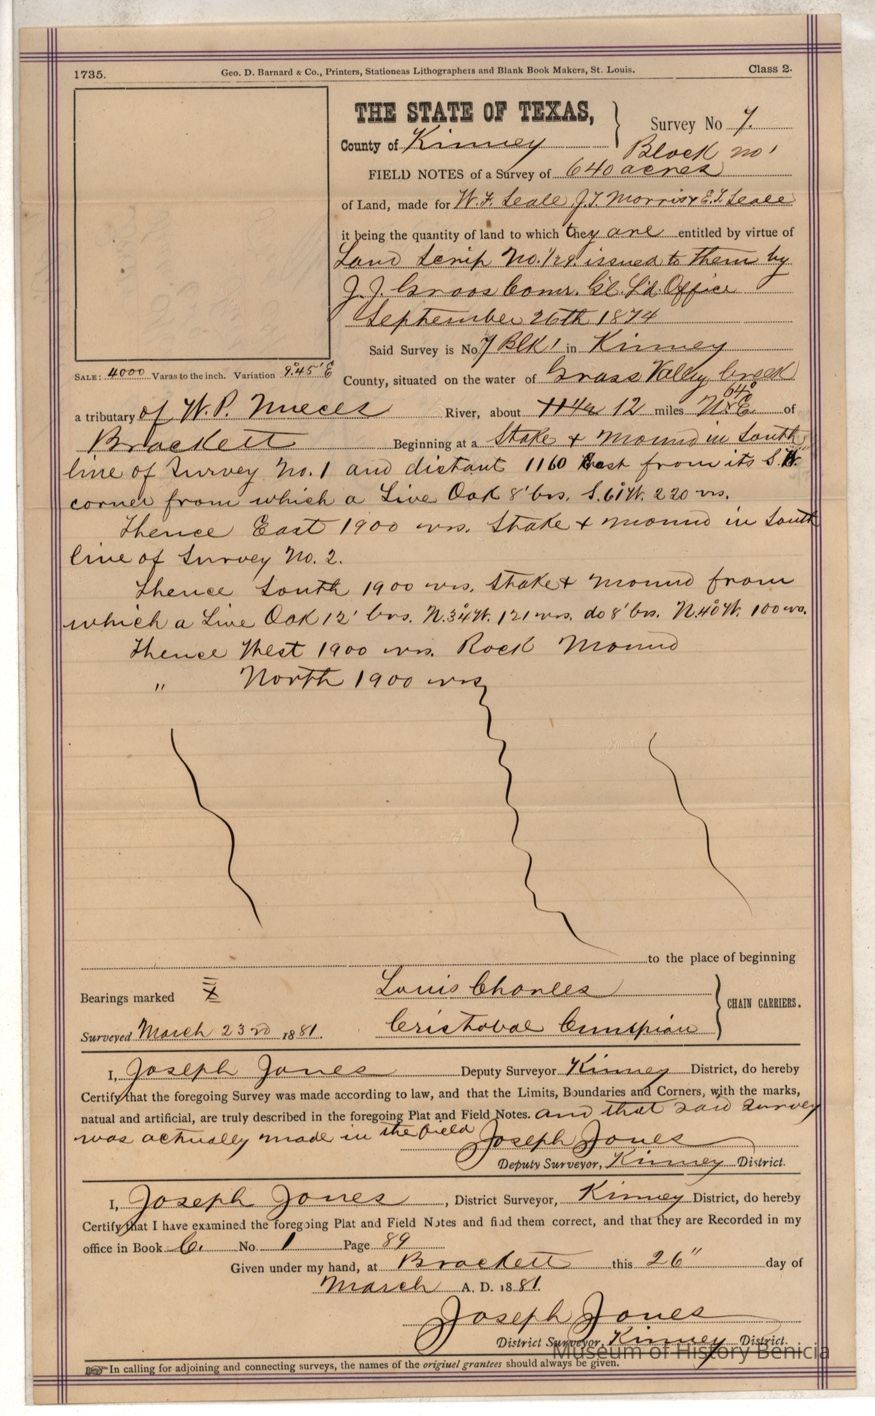 1735.
Geo. D. Barnard & Co., Printers, Stationeas Lithographers and Blank Book Makers, St. Louis.
Class 2.
THE STATE OF TEXAS,
County of Kinney
Survey No 7.
Block no 1
FIELD NOTES of a Survey of 640 acres
of Land, made for W. F. Seale J. T. Morris & E. T. Seale
it being the quantity of land to which they are entitled by virtue of
Land Scrip No. issued to them by
J. J. Groos Comr. Gl. Ld. Office
September 26th 1874
Said Survey is No 7 Blk 1 in Kinney
SALE: 4000 Varas to the inch. Variation 9°.45' E
County, situated on the water of Grass Valley Creek
a tributary of W. P. Nueces River, about 12 miles N. 64° E. of
Brackett Beginning at a Stake & Mound in South
line of Survey No. 1 and distant 1160 East from its S. W.
corner from which a Live Oak 8" brs. S. 61° W. 220 vrs.
Thence East 1900 vrs. Stake & Mound in South
line of Survey No. 2.
Thence South 1900 vrs. Stake & Mound from
which a Live Oak 12" brs. N. 34° W. 121 vrs. do 8" brs. N. 40° W. 100 vrs.
Thence West 1900 vrs. Rock Mound
" North 1900 vrs
to the place of beginning
Bearings marked X
Louis Charles
Cristoval
CHAIN CARRIERS.
Surveyed March 23rd 1881.
I, Joseph Jones Deputy Surveyor Kinney District, do hereby
Certify that the foregoing Survey was made according to law, and that the Limits, Boundaries and Corners, with the marks,
natual and artificial, are truly described in the foregoing Plat and Field Notes. and that said Survey
was actually made in the field Joseph Jones
Deputy Surveyor, Kinney District.
I, Joseph Jones, District Surveyor, Kinney District, do hereby
Certify that I have examined the foregoing Plat and Field Notes and find them correct, and that they are Recorded in my
office in Book C. No 1 Page 89
Given under my hand, at Brackett this 26" day of
March A. D. 1881.
Joseph Jones
District Surveyor, Kinney District.
Museum of History Benicia
In calling for adjoining and connecting surveys, the names of the originel grantees should always be given.